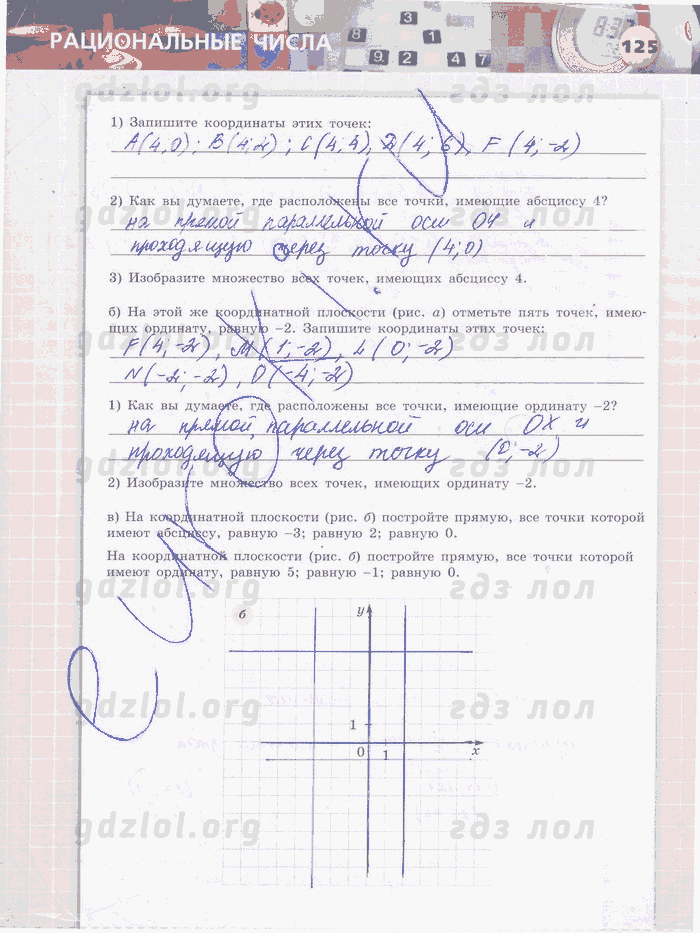 РАЦИОНАЛЬНЫЕ ЧИСЛА
125
3
8
1
9
2
4
7
gdzlol.org гдз лол
1) Запишите координаты этих точек:
A(4,0); B(4;2); C(4;4), D(4;6), F(4;-2)
2) Как вы думаете, где расположены все точки, имеющие абсциссу 4?
gdzlol.org гдз лол
на прямой параллельной оси ОУ и
проходящую через точку (4;0)
3) Изобразите множество всех точек, имеющих абсциссу 4.
б) На этой же координатной плоскости (рис. а) отметьте пять точек, имею-
щих ординату, равную −2. Запишите координаты этих точек:
gdzlol.org гдз лол
F(4;-2), M(1;-2), L(0;-2)
N(-2;-2), O(-4;-2)
1) Как вы думаете, где расположены все точки, имеющие ординату −2?
на прямой, параллельной оси ОХ и
проходящую через точку (0;-2)
gdzlol.org гдз лол
2) Изобразите множество всех точек, имеющих ординату −2.
в) На координатной плоскости (рис. б) постройте прямую, все точки которой
имеют абсциссу, равную −3; равную 2; равную 0.
На координатной плоскости (рис. б) постройте прямую, все точки которой
имеют ординату, равную 5; равную −1; равную 0.
gdzlol.org гдз лол
б
y
gdzlol.org гдз лол
1
0
1
x
gdzlol.org гдз лол